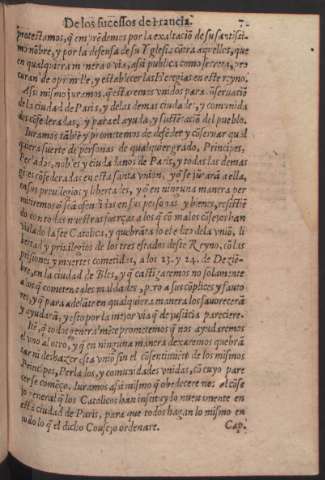 De los sucessos de Francia. 7.
protestamos, q̃ emprẽdemos por la exaltaciõ de su santissi-
mo nõbre, y por la defensa de su Yglesia cõtra aquellos, que
en qualquiera manera o via, assi publica como secreta, pro
curan de oprimille, y establecer las Heregias en este reyno.
Assi mismo juramos, q̃ estaremos vnidos para cõseruaciõ
de la ciudad de Paris, y de las demas ciudades, y comunida
des cõfederadas, y para el ayuda, y sustẽtaciõ del pueblo.
Iuramos tãbiẽ y prometemos de defẽder y cõseruar qual
quiera suerte de personas de qualquier grado, Principes,
Perlados, nobles y ciudadanos de Paris, y todas las demas
cõfederadas en esta santa vnion, yõ se jurarã a ella,
en sus preuilegios y libertades, y õ en ninguna manera per
mitiremos seã ofendidos en sus personas y bienes, resistiẽ
do con todas nuestras fuerças a los q̃ cõ malos cõsejos han
violado la fee Catolica, y quebrãtado el edicto dela vniõ, li
bertad y priuilegios de los tres estados deste Reyno, cõ las
prisiones y muertes cometidas, a los 23. y 24. de Deziẽ-
bre, en la ciudad de Bles, y q̃ castigaremos no solamente
a los q̃ cometen tales maldades, pero a sus cõplices y fauto
res, y q̃ para adelãte en qualquiera manera los fauorecerã
y ayudarã, y esto por la mejor via q̃ de justicia pareciere.
Itẽ, q̃ todos generalmẽte prometemos q̃ nos ayudaremos
el vno al otro, y q̃ en ninguna manera dexaremos quebrã
tar ni deshazer esta vniõ sin el cõsentimiẽto de los mismos
Principes, Perlados, y comunidades vnidas, cõ cuyo pare
cer se começo. Iuramos assi mismo q̃ obedecerẽmos al cõse
jo general q̃ los Catolicos han instituydo nueuamente en
esta ciudad de Paris, para que todos hagan lo mismo en
todo lo q̃ el dicho Consejo ordenare. Cap.